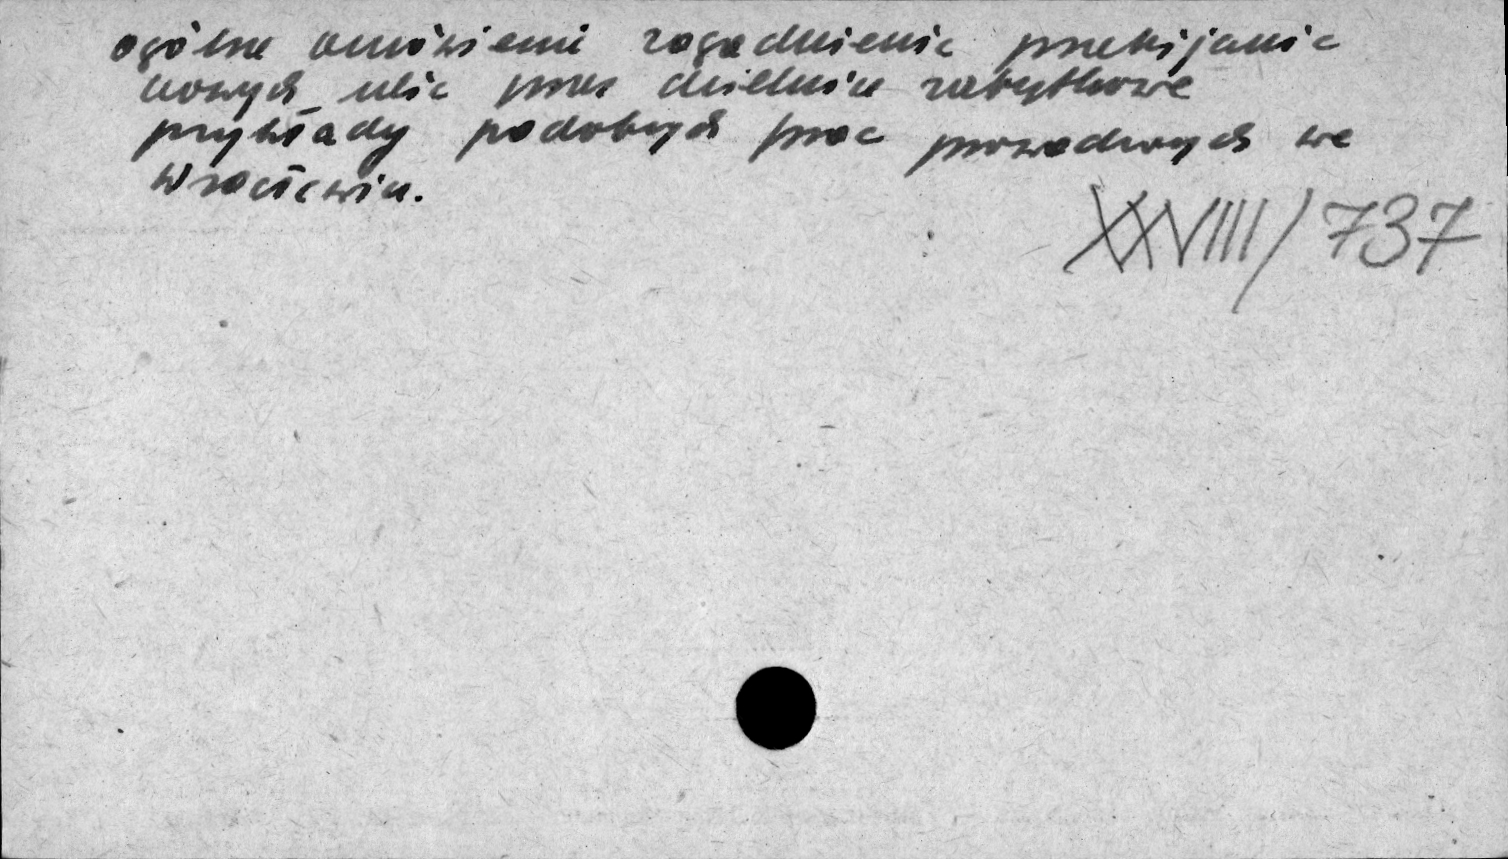 ogólne omówienie zagadnienia przebijania
nowych ulic przez dzielnice zabytkowe
przykłady podobnych prac prowadzonych we
Wrocławiu.
XXVIIII/737